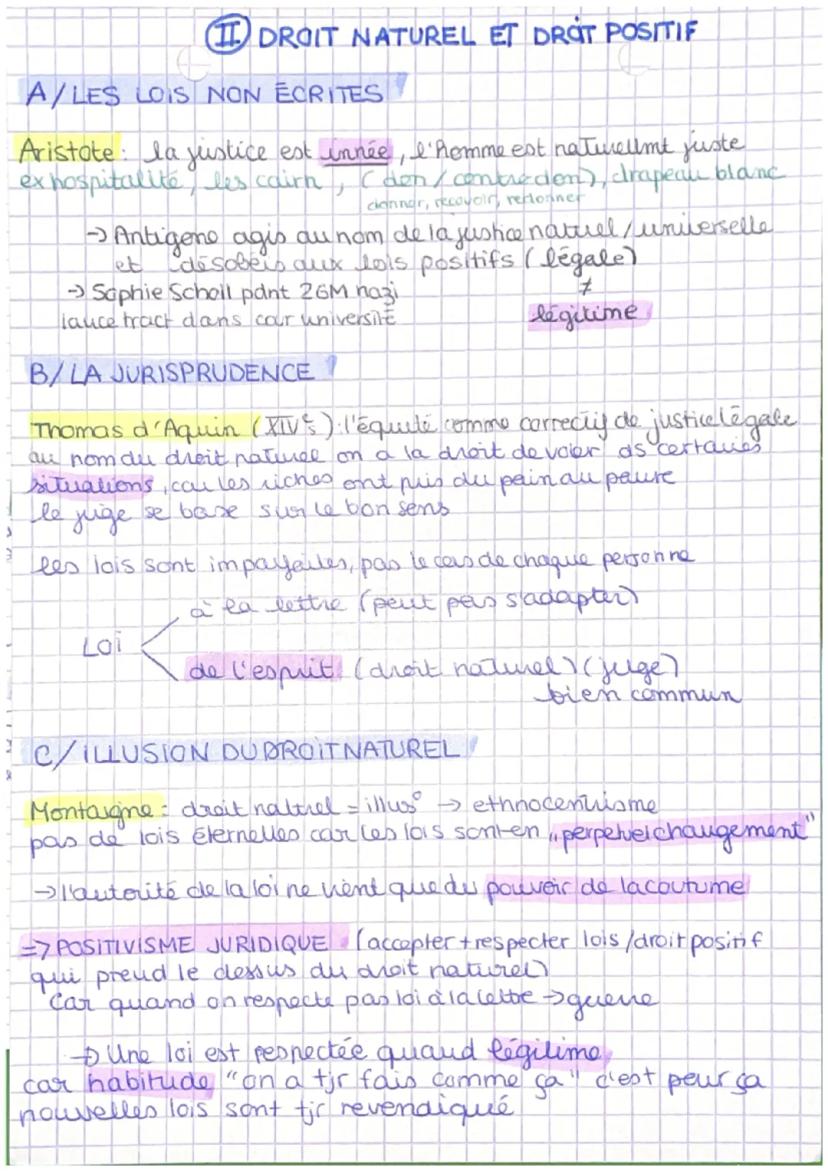 II DROIT NATUREL ET DROIT POSITIF
A/ LES LOIS NON ÉCRITES
Aristote : la justice est innée, l'Homme est naturellmt juste
ex hospitalité, les cairn, (don/contredon), drapeau blanc
donner, recevoir, redonner
→ Antigone agis au nom de la justice naturel/universelle
et désobeis aux lois positifs (légale)
≠
→ Sophie Scholl pdnt 2GM nazi
lance tract dans cour université
légitime
B/ LA JURISPRUDENCE
Thomas d'Aquin (XIVe s) : l'équité comme correctif de justice légale
au nom du droit naturel on a la droit de voler ds certaines
situations, car les riches ont pris du pain au pauvre
le juge se base sur le bon sens
les lois sont imparfaites, pas le cas de chaque personne
à la lettre (peut pas s'adapter)
Loi
de l'esprit (droit naturel) (juge)
bien commun
C/ ILLUSION DU DROIT NATUREL
Montaigne : droit naturel = illus° → ethnocentrisme
pas de lois éternelles car les lois sont en "perpetuel changement"
→ l'autorité de la loi ne vient que du pouvoir de la coutume
=> POSITIVISME JURIDIQUE (accepter + respecter lois/droit positif
qui prend le dessus du droit naturel)
Car quand on respecte pas loi à la lettre → guerre
→ Une loi est respectée quand légitime
car habitude "on a tjr fais comme ça" c'est pour ça
nouvelles lois sont tjr revendiqué